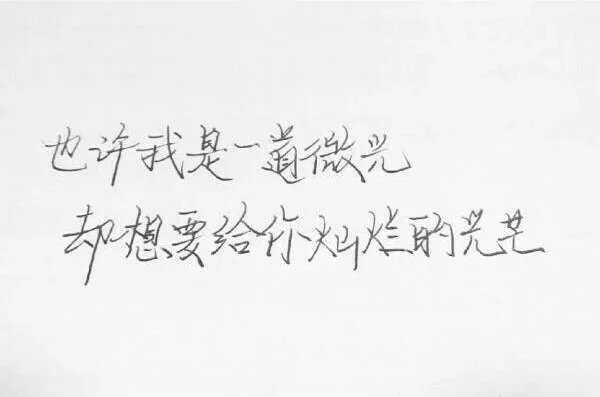 也许我是一道微光
却想要给你灿烂的光芒